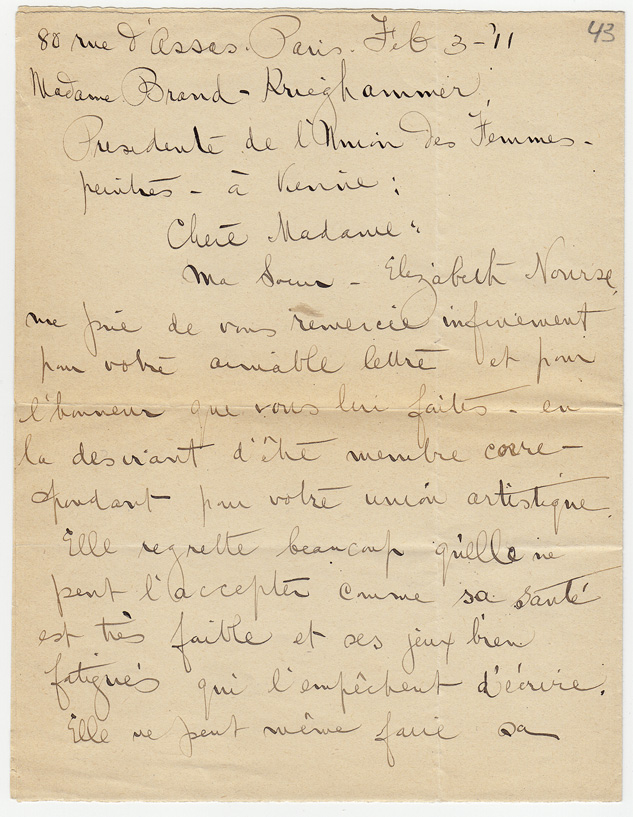 43
80 rue d'Assas. Paris. Feb 3-'11
Madame Brand-Krieghammer,
Presidente de l'Union des Femmes-
peintres - à Vienne:
Chere Madame:
Ma Soeur - Elizabeth Nourse,
me prie de vous remercie infiniement
pour votre aimable lettre et pour
l'honneur que vous lui faites - en
la desirant d'être membre corre-
spondant pour votre union artistique.
Elle regrette beaucoup qu'elle ne
peut l'accepter comme sa santé
est très faible et ses jeux bien
fatigués qui l'empêchent d'écrire.
Elle ne peut même faire sa